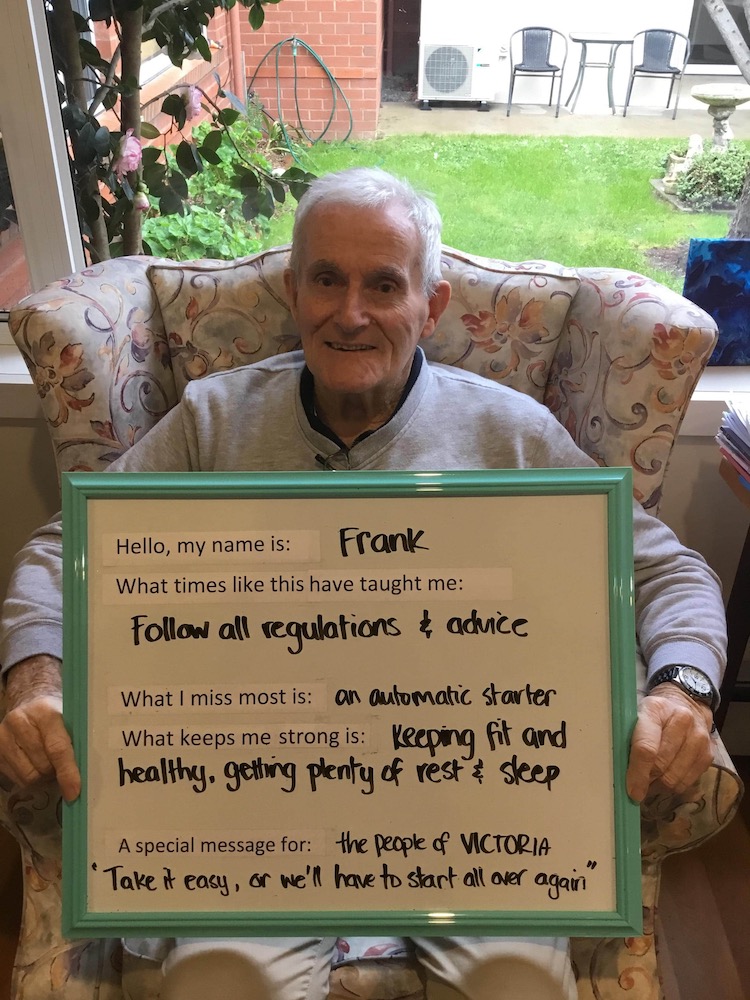 Hello, my name is: Frank
What times like this have taught me:
Follow all regulations & advice
What I miss most is: an automatic starter
What keeps me strong is: Keeping fit and
healthy, getting plenty of rest & sleep
A special message for: the people of VICTORIA
"Take it easy, or we'll have to start all over again"